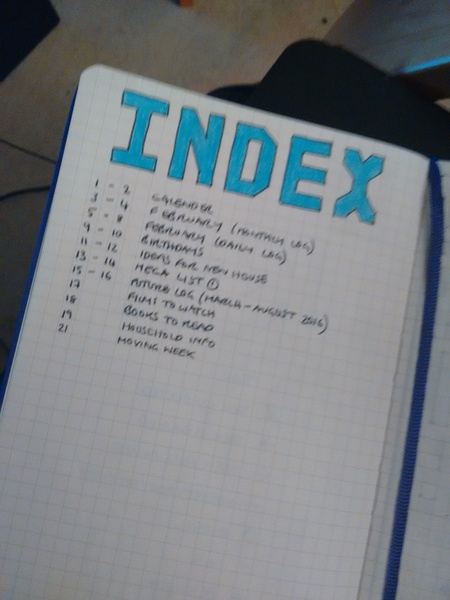 INDEX
1 - 2 CALENDER
3 - 4 FEBRUARY (MONTHLY LOG)
5 - 8 FEBRUARY (DAILY LOG)
9 - 10 BIRTHDAYS
11 - 12 IDEAS FOR NEW HOUSE
13 - 14 MEGA LIST ①
15 - 16 FUTURE LOG (MARCH - AUGUST 2016)
17 FILMS TO WATCH
18 BOOKS TO READ
19 HOUSEHOLD INFO
21 MOVING WEEK